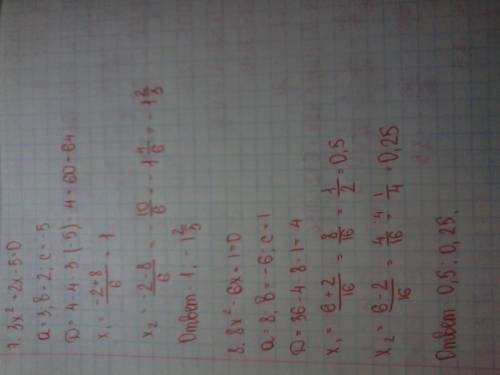 7. 3x² + 2x - 5 = 0
a = 3, b = 2, c = -5
D = 4 - 4 · 3 · (-5) = 4 + 60 = 64
x₁ = (-2+8)/6 = 1
x₂ = (-2-8)/6 = -10/6 = -1 4/6 = -1 2/3
Ответ: 1; -1 2/3
8. 8x² - 6x + 1 = 0
a = 8, b = -6; c = 1
D = 36 - 4 · 8 · 1 = 4
x₁ = (6+2)/16 = 8/16 = 1/2 = 0,5
x₂ = (6-2)/16 = 4/16 = 1/4 = 0,25
Ответ: 0,5; 0,25.